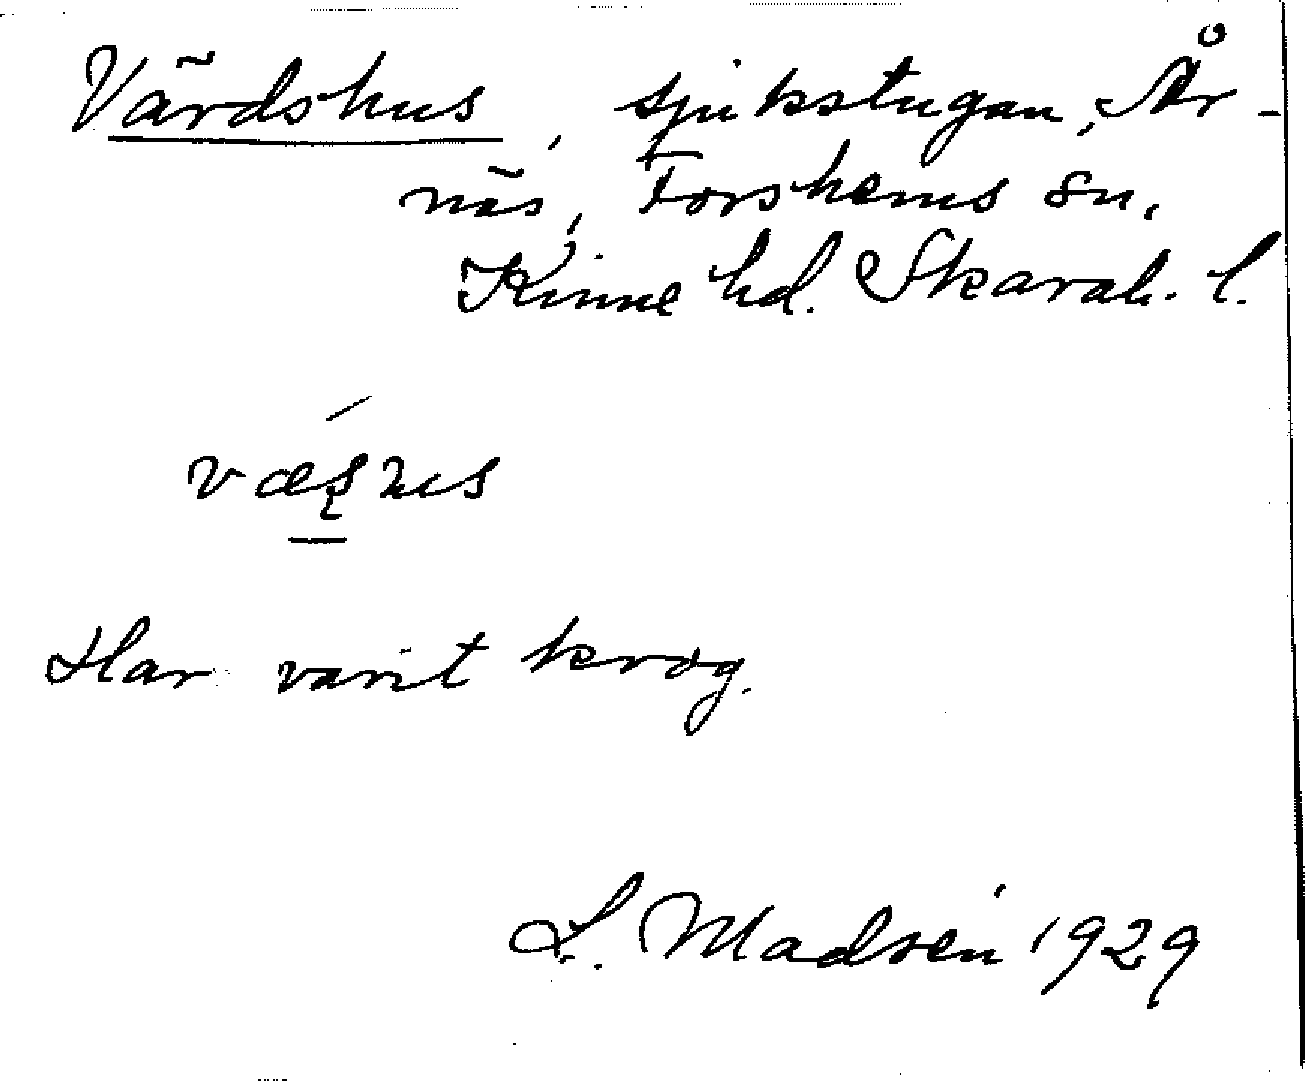 Värdshus, sjukstugan, År-
näs, Forshems sn.
Kinne hd. Skarab. l.
væʂus
Har varit krog.
L. Madsén 1929